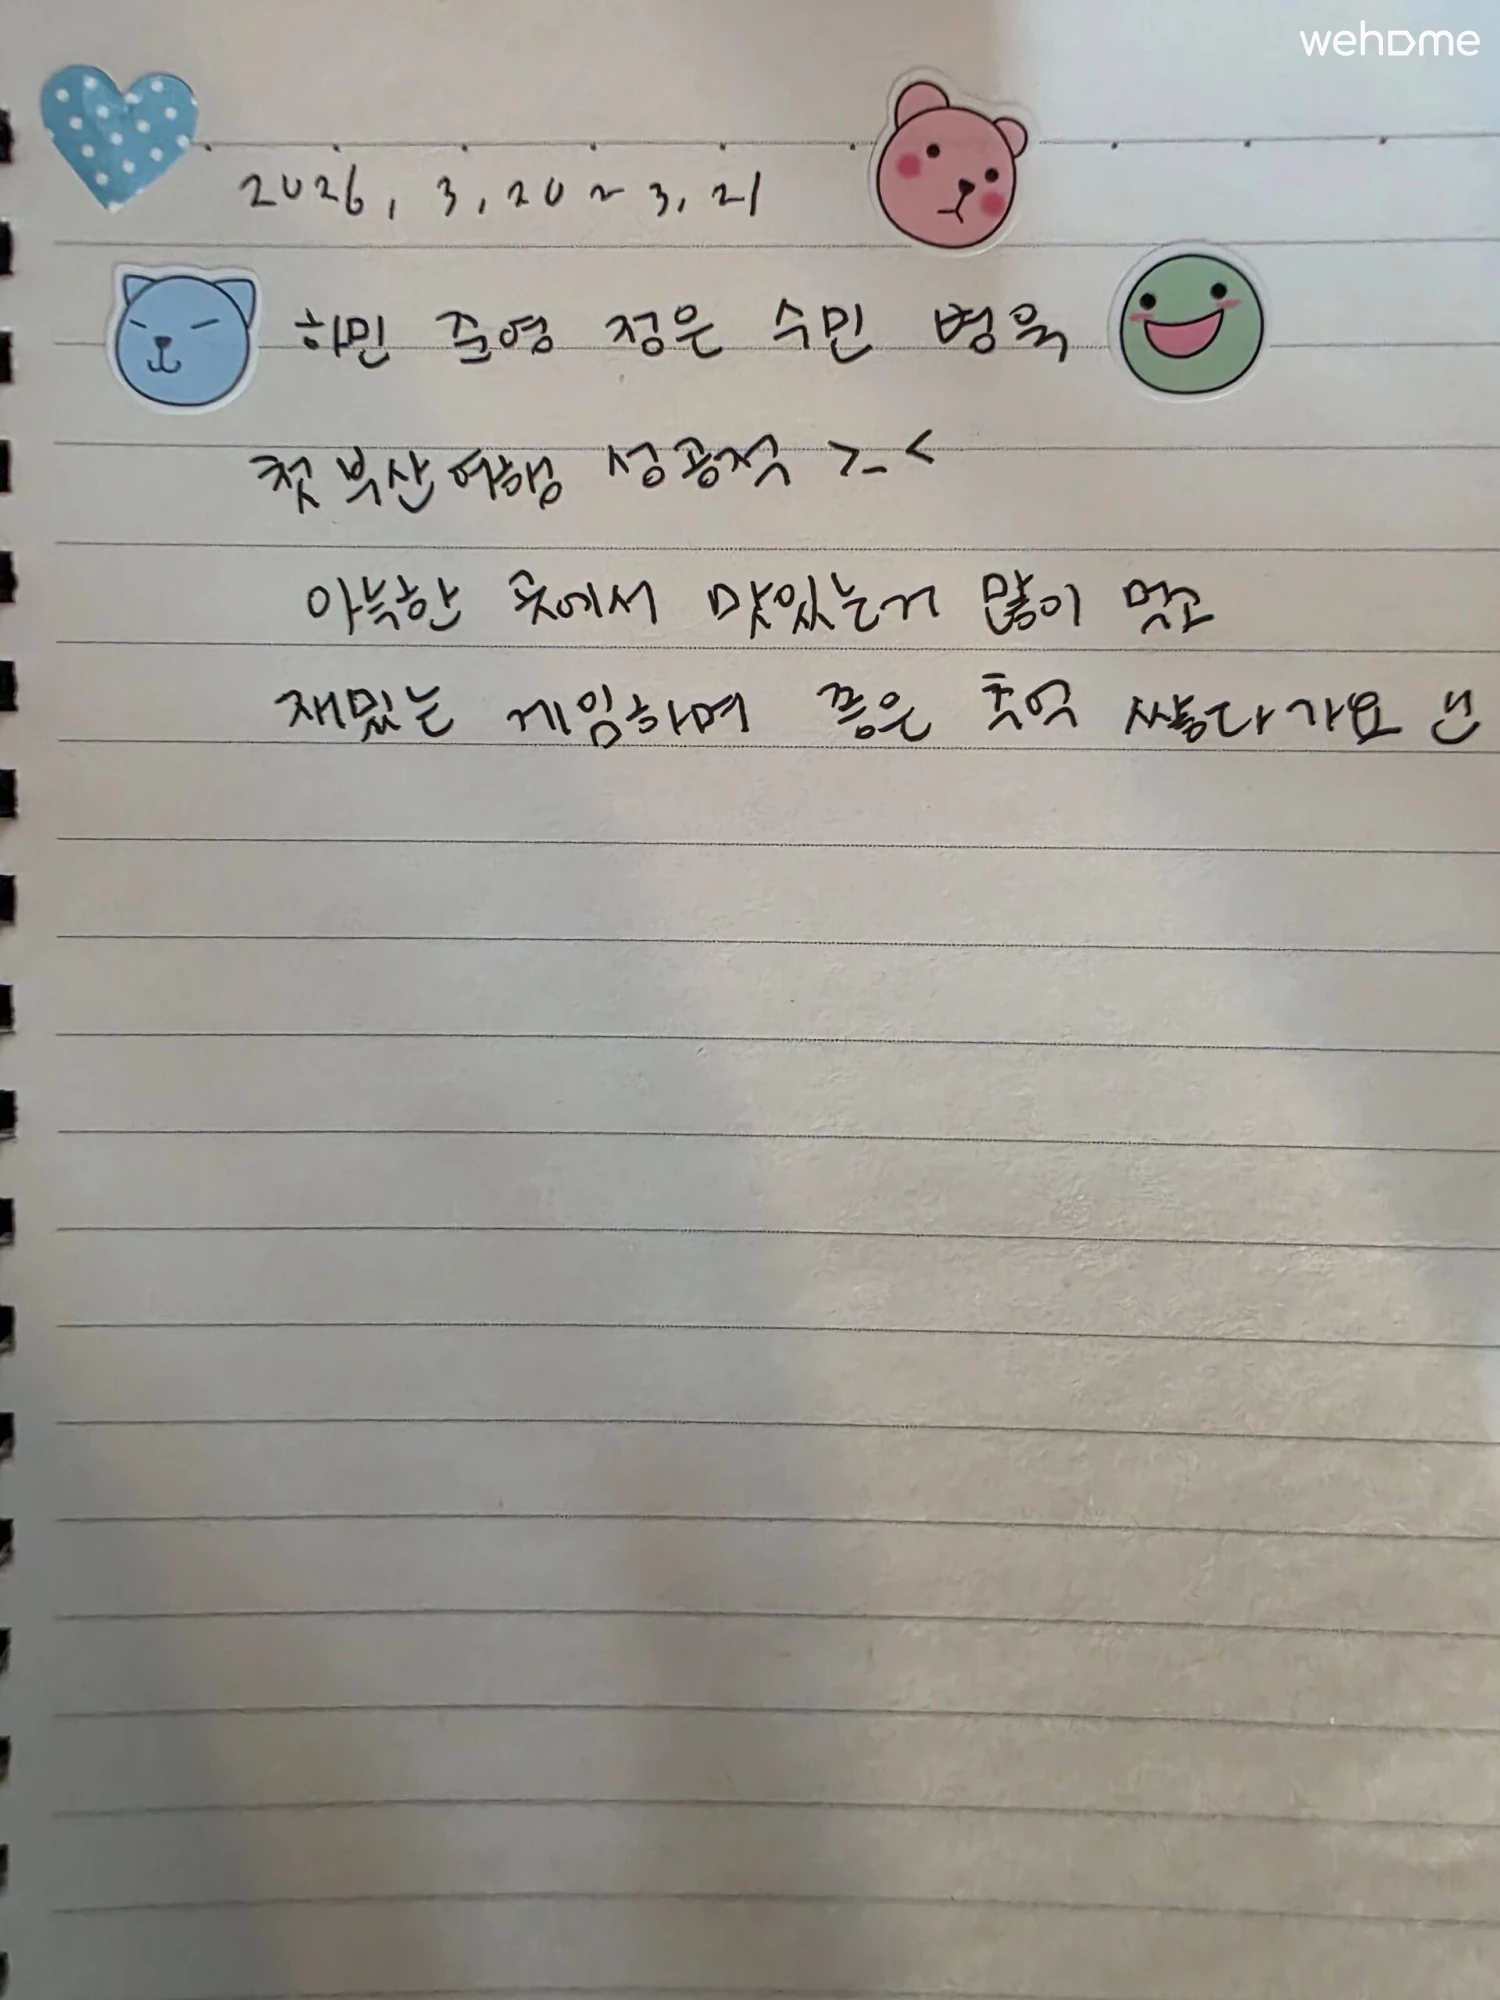 wehome
2026, 3, 20 ~ 3, 21
하민 준영 정은 수민 병욱
첫 부산여행 성공적 >_<
아늑한 곳에서 맛있는거 많이 먹고
재밌는 게임하며 좋은 추억 쌓다가요